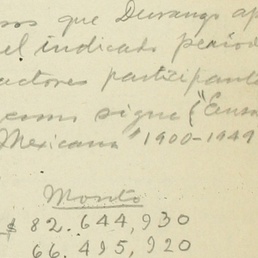 sos que Durango ap
el indicado period
actores participant
como sigue ("Ensa
Mexicana "1900-1949
Monto
$ 82.644,930
66.495,920